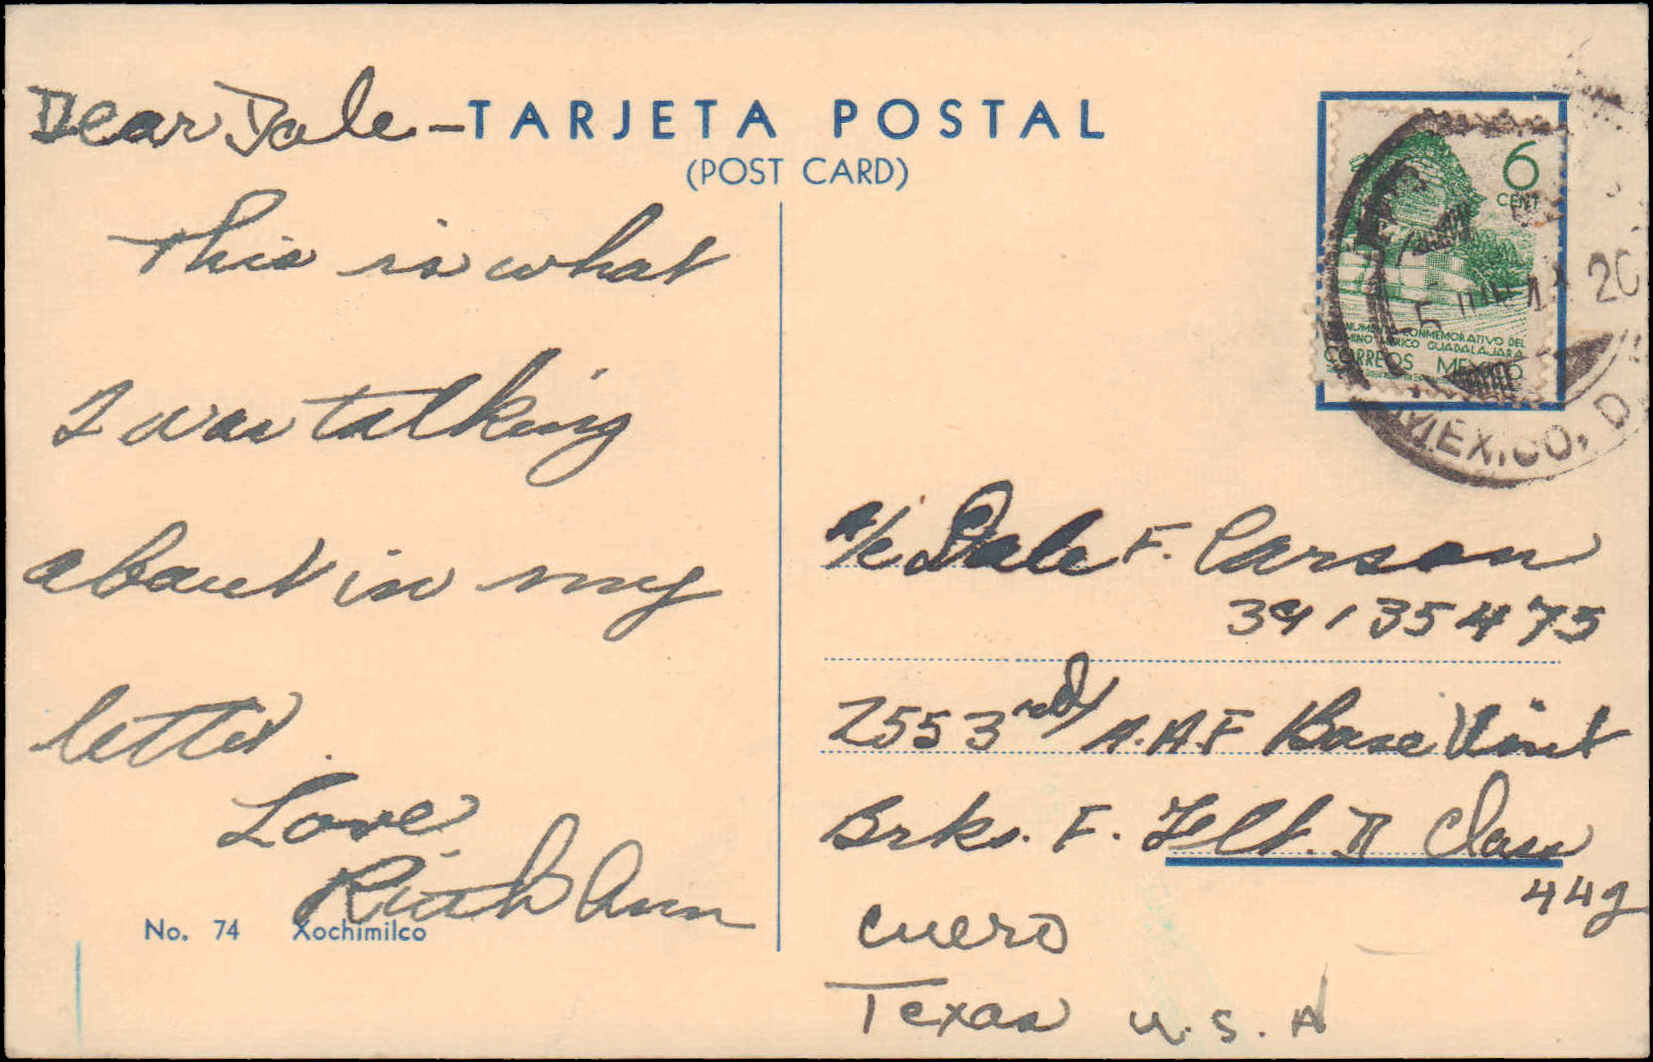 TARJETA POSTAL
(POST CARD)
Dear Dale -
This is what
I was talking
about in my
letter.
Love,
Ruth Ann
No. 74 Xochimilco
6
CENT
CONMEMORATIVO DEL
MEXICO GUADALAJARA
CORREOS MEXICO
5 44 20
MEXICO, D.
A/C Dale F. Carson
39135475
2553rd A.A.F Base Unit
Brks. F. Flt. II Class
44g
Cuero
Texas U.S.A